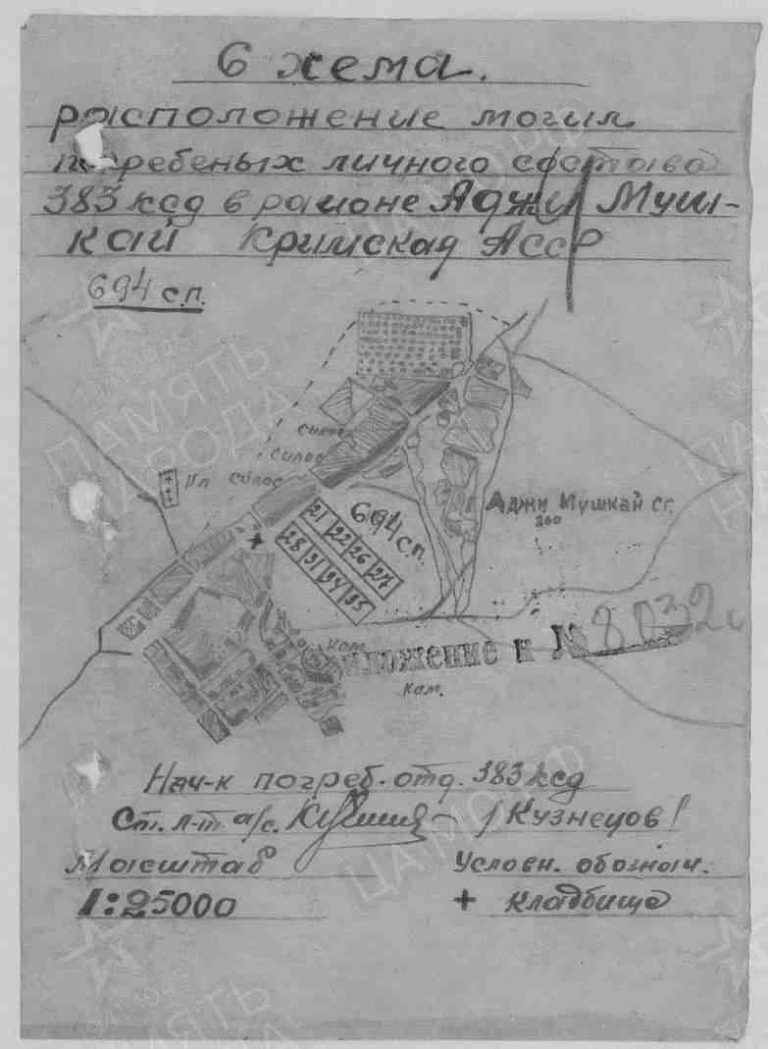 Схема.
расположение могил
погребеных личного состава
383 ксд в районе Аджи Муш-
кай Кримская АССР
694 с.п.
силос
силос
Кл силос
694 сп.
21 22 26 27
28 31 34 35
Аджи Мушкай сг.
200
кам.
Приложение к № 8032с
кам.
Нач-к погреб. отд. 383 ксд
Ст. л-т а/с. /Кузнецов/
Масштаб
1:25000
Условн. обознач.
+ кладбище
ПАМЯТЬ
НАРОДА
ЦАМО РФ